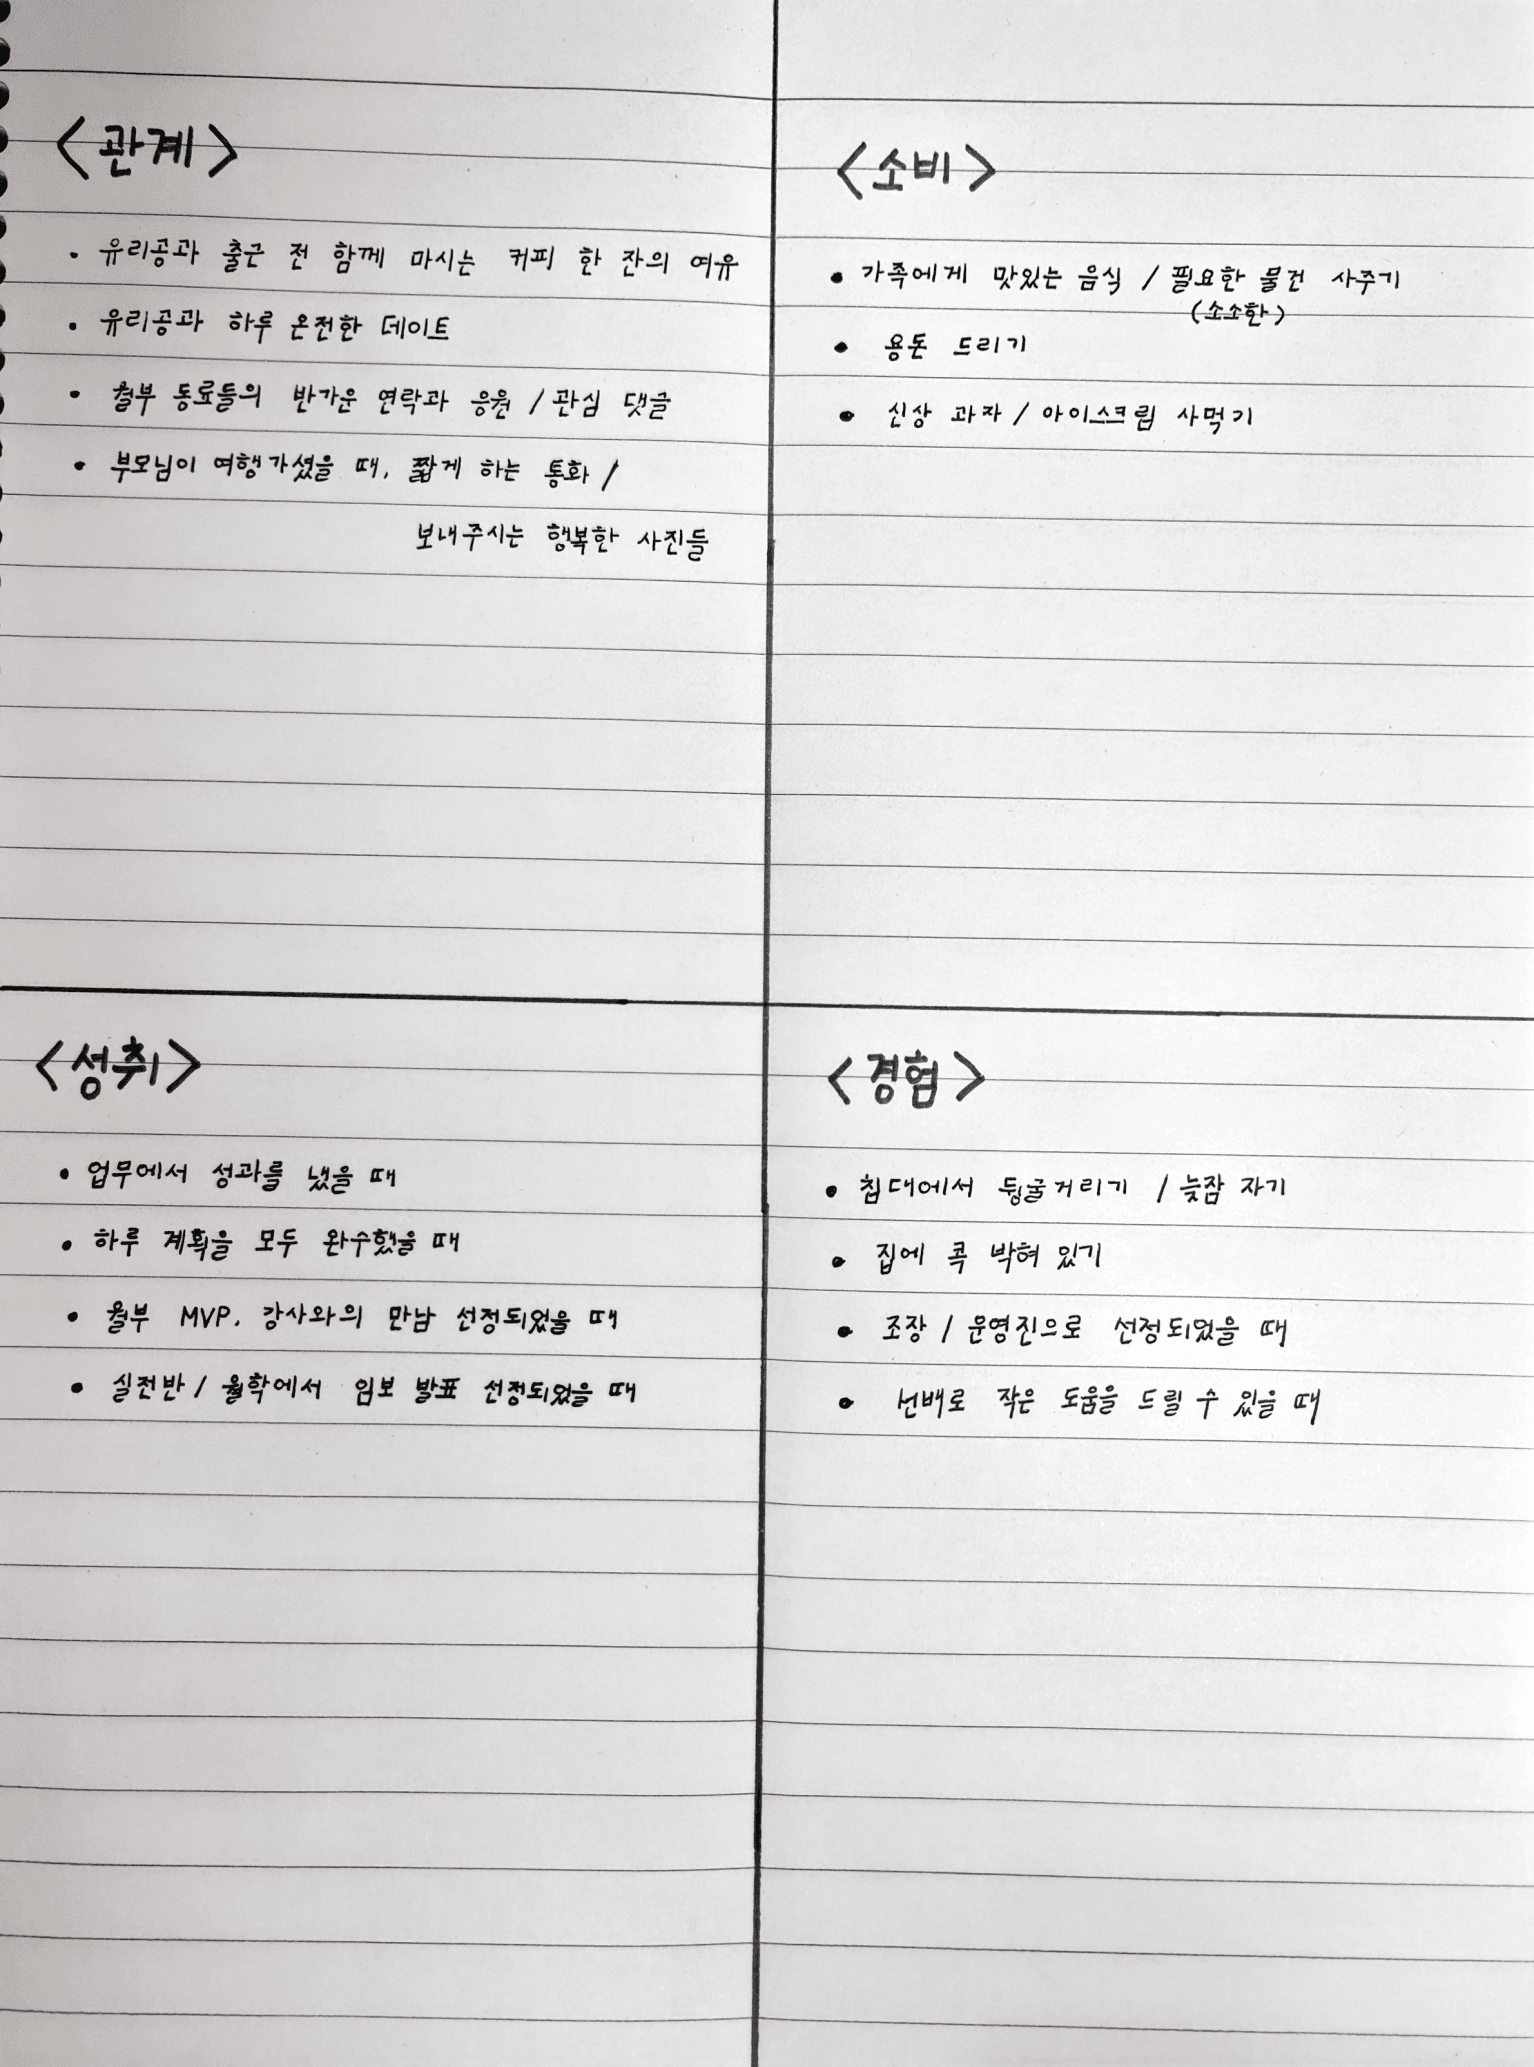 <관계>
• 유리공과 출근 전 함께 마시는 커피 한 잔의 여유
• 유리공과 하루 온전한 데이트
• 월부 동료들의 반가운 연락과 응원 / 관심 댓글
• 부모님이 여행가셨을 때, 짧게 하는 통화 /
보내주시는 행복한 사진들
<소비>
• 가족에게 맛있는 음식 / 필요한 물건 사주기
(소소한)
• 용돈 드리기
• 신상 과자 / 아이스크림 사먹기
<성취>
• 업무에서 성과를 냈을 때
• 하루 계획을 모두 완수했을 때
• 월부 MVP, 강사와의 만남 선정되었을 때
• 실전반 / 월학에서 임보 발표 선정되었을 때
<경험>
• 침대에서 뒹굴거리기 / 늦잠 자기
• 집에 콕 박혀 있기
• 조장 / 운영진으로 선정되었을 때
• 선배로 작은 도움을 드릴 수 있을 때